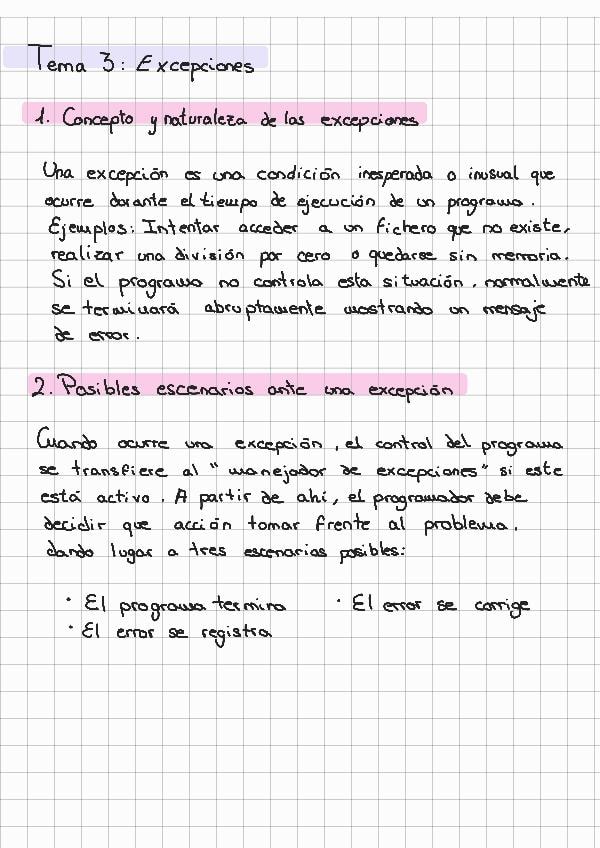 Tema 3: Excepciones
1. Concepto y naturaleza de las excepciones
Una excepción es una condición inesperada o inusual que
ocurre durante el tiempo de ejecución de un programa.
Ejemplos: Intentar acceder a un fichero que no existe,
realizar una división por cero o quedarse sin memoria.
Si el programa no controla esta situación, normalmente
se terminará abruptamente mostrando un mensaje
de error.
2. Posibles escenarios ante una excepción
Cuando ocurre una excepción, el control del programa
se transfiere al "manejador de excepciones" si este
está activo. A partir de ahí, el programador debe
decidir que acción tomar frente al problema,
dando lugar a tres escenarios posibles:
· El programa termina · El error se corrige
· El error se registra